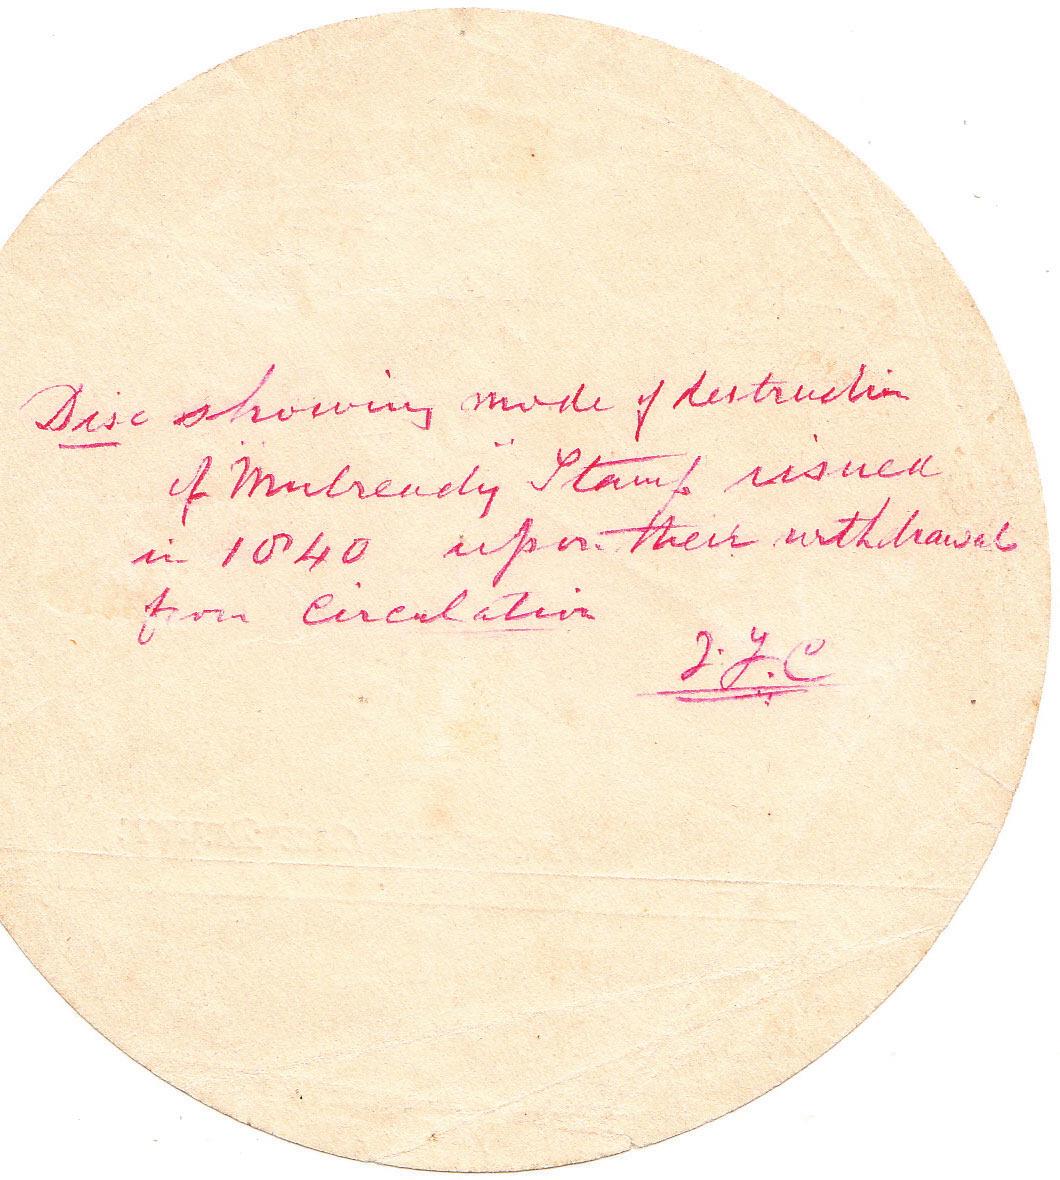 Disc showing mode of destruction
of "Mulready" Stamp issued
in 1840 upon their withdrawal
from Circulation